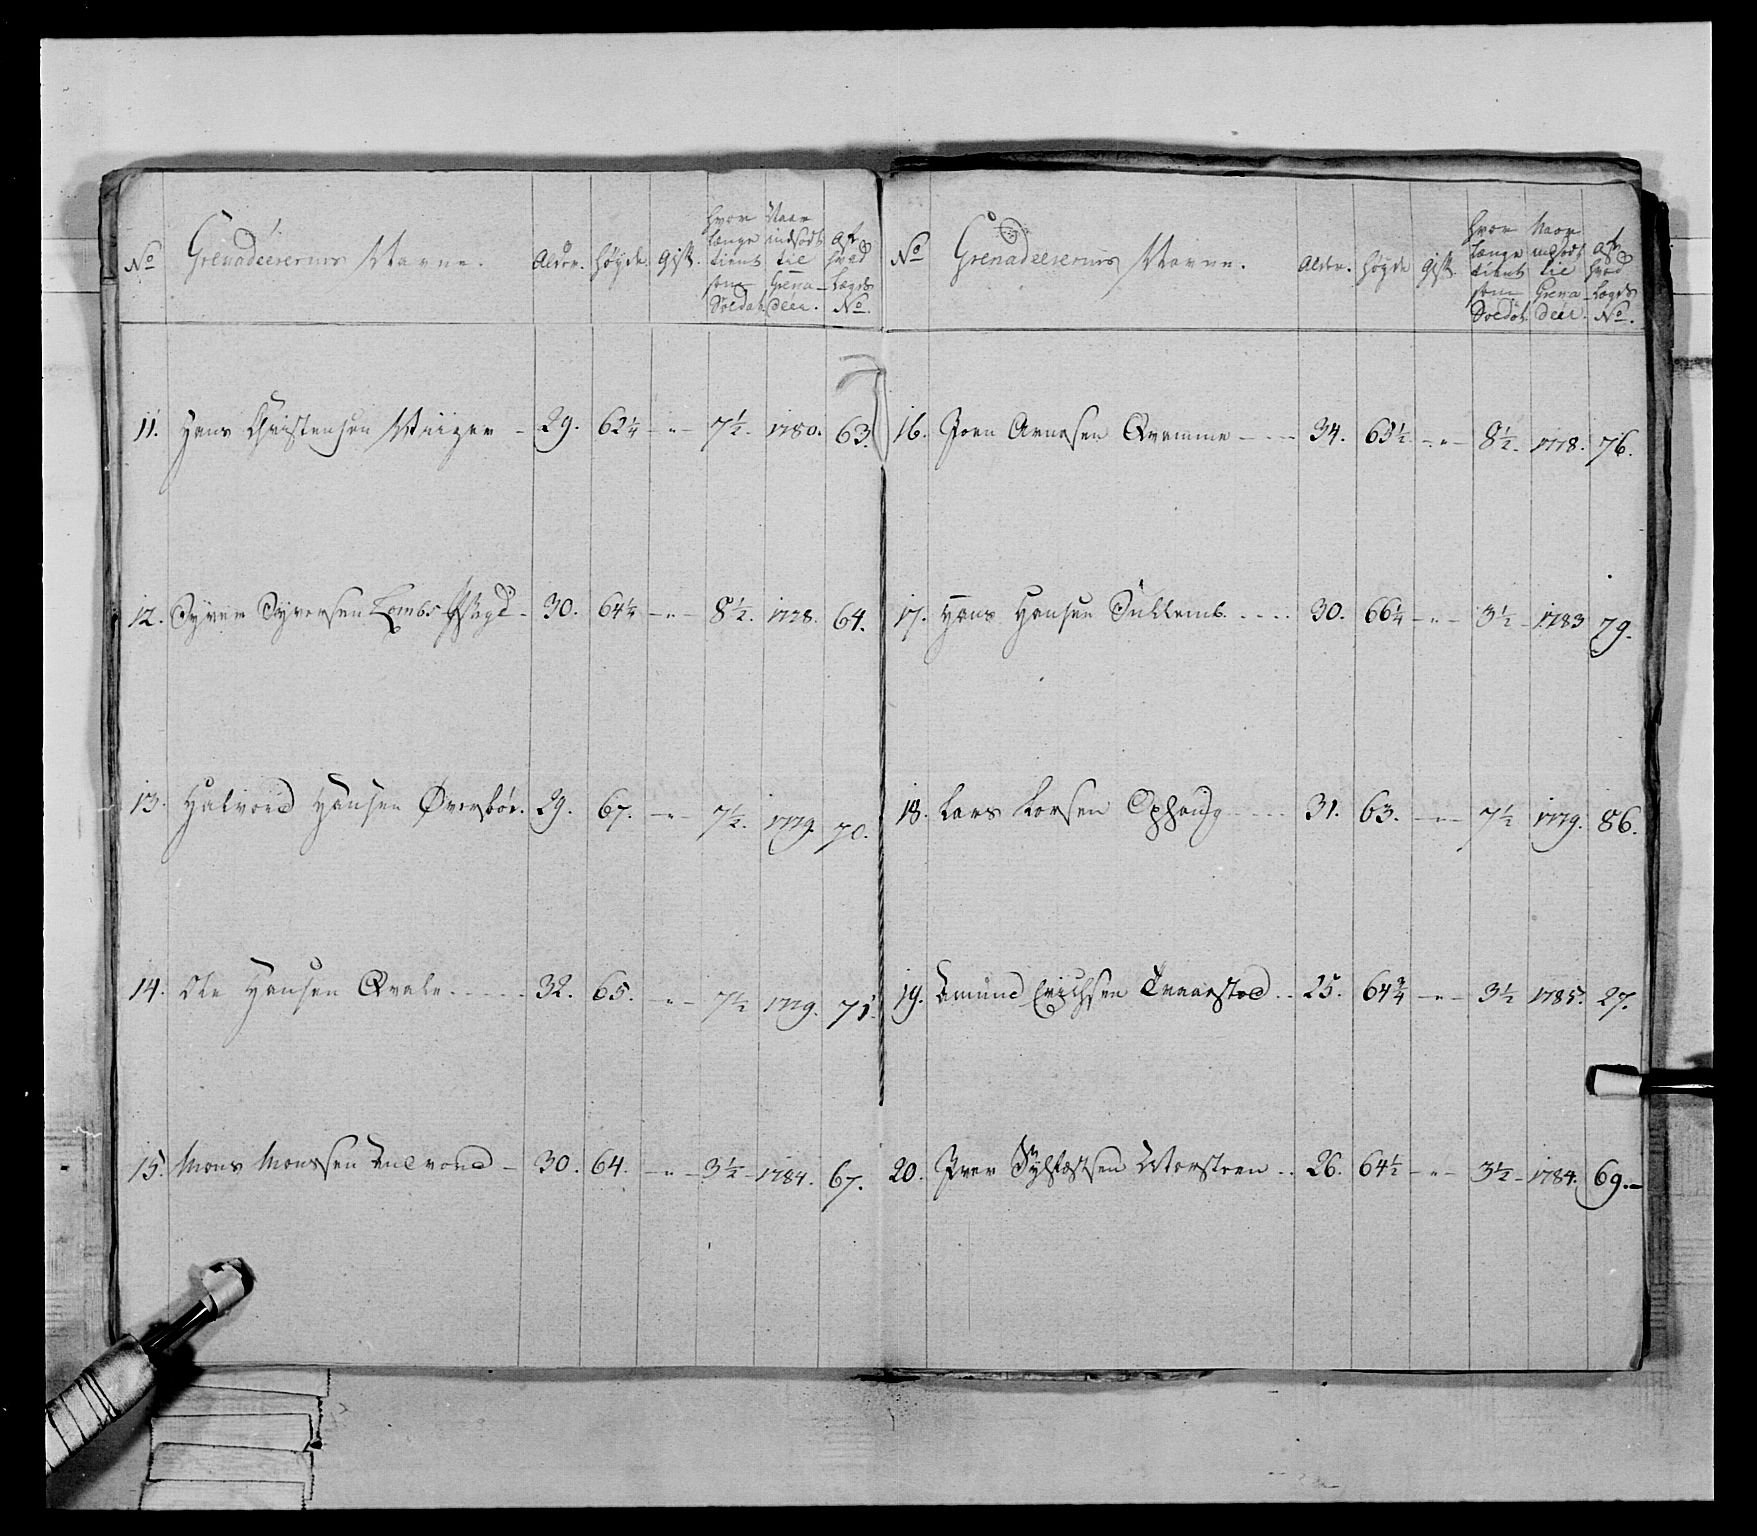 No Grenadeerernes Navne. Alder. Høyde. Gift. hvor længe tient som Soldat. Naar indsadt til Grenadeer. Af hved Lægds No.
11. Hans Christensen - 29. 62¼ - " - 7½. 1780. 63.
12. Syver Syversen - 30. 64¼ - " - 8½. 1778. 64.
13. Halvord Hansen Øverbøe. 29. 67. - " - 7½. 1779. 70.
14. Ole Hansen Qvale ..... 32. 65. - " - 7½ 1779. 71.
15. Mons Monssen - 30. 64. - " - 3½ - 1784. 67.
No Grenadeerernes Navne. Alder. Høyde Gift. hvor længe tient som Soldat. Naar indsadt til Grenadeer. Af hved Lægds No.
16. Joen Arnesen Qvamme - - - - 34. 63½ - " - 8½. 1778. 76.
17. Hans Hansen . . . . 30. 66¼ - " - 3½ - 1783 79.
18. Lars Larsen Ophaug - - - - 31. 63. - " - 7½ 1779. 86.
19. Amund Erichsen . . 25. 64¾ - " - 3½ 1785. 27.
20. Iver Sylfæstsen . . 26. 64½ - " - 3½ - 1784. 69. -